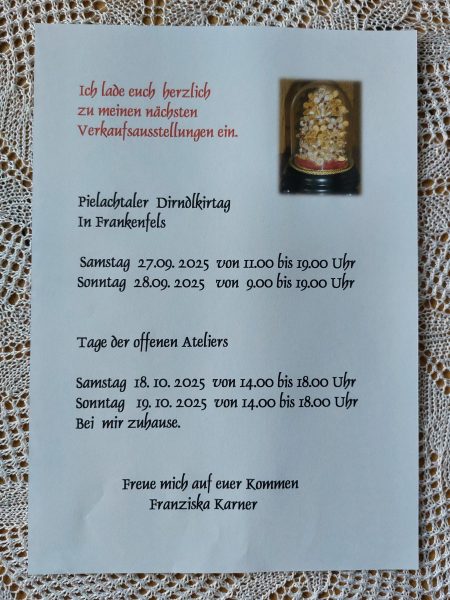 Ich lade euch herzlich
zu meinen nächsten
Verkaufsausstellungen ein.
Pielachtaler Dirndlkirtag
In Frankenfels
Samstag 27.09. 2025 von 11.00 bis 19.00 Uhr
Sonntag 28.09. 2025 von 9.00 bis 19.00 Uhr
Tage der offenen Ateliers
Samstag 18. 10. 2025 von 14.00 bis 18.00 Uhr
Sonntag 19. 10. 2025 von 14.00 bis 18.00 Uhr
Bei mir zuhause.
Freue mich auf euer Kommen
Franziska Karner